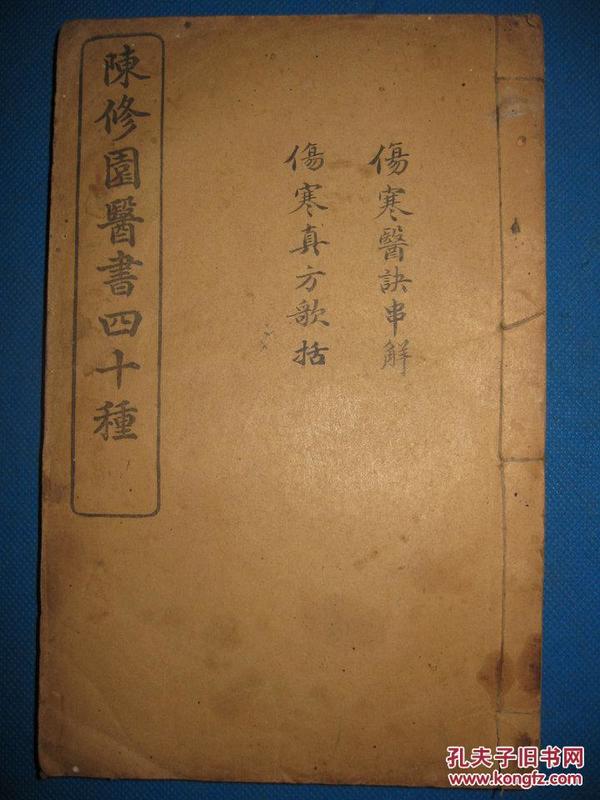 陳修園醫書四十種
傷寒醫訣串解
傷寒真方歌括
孔夫子旧书网
www.kongfz.com